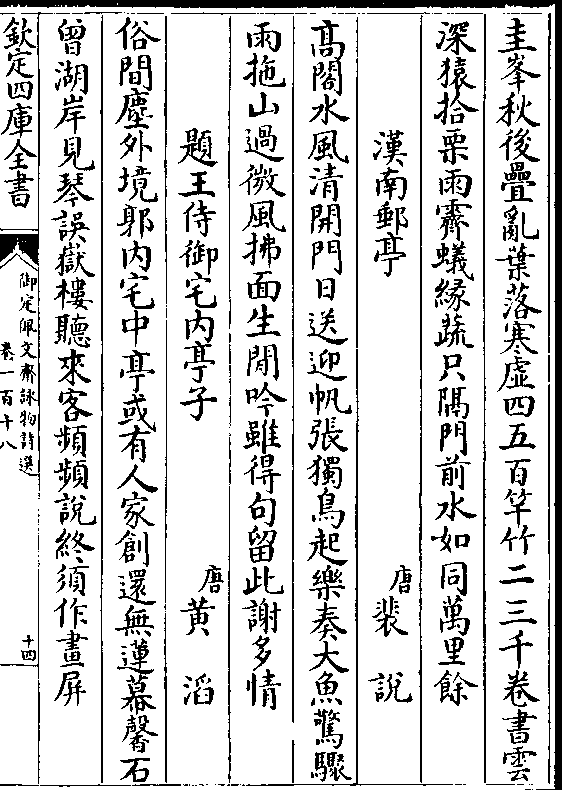 圭峯秋後疊亂葉落寒虛四五百竿竹二三千卷書雲
深猿拾栗雨霽蟻緣蔬只隔門前水如同萬里餘
漢南郵亭 唐 裴說
髙閣水風清開門日送迎帆張獨鳥起樂奏大魚驚驟
雨拖山過微風拂面生閒吟雖得句留此謝多情
題王侍御宅内亭子 唐 黄滔
俗間塵外境郭内宅中亭或有人家創還無蓮幕馨石
曾湖岸見琴誤嶽樓聽來客頻頻說終須作畫屏
欽定四庫全書
御定佩文齋詠物詩選
卷一百十八
十四